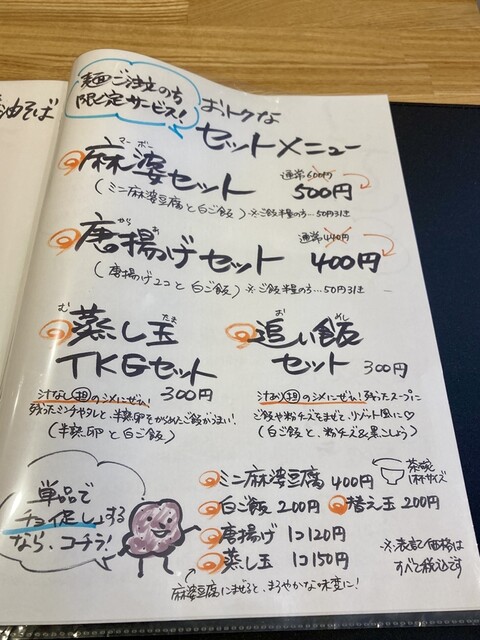 油そば
麺ご注文の方
限定サービス!
おトクな
セットメニュー
マーボー
麻婆セット
通常600円
500円
(ミニ麻婆豆腐と白ご飯)※ご飯半量の方…50円引き
から あ
唐揚げセット
通常440円
400円
(唐揚げ2コと白ご飯)※ご飯半量の方…50円引き
む たま
蒸し玉
TKGセット
300円
汁なし担のシメにぜひ!
残ったミンチやタレと、半熟卵をからめたご飯がうまい!
(半熟卵と白ご飯)
お めし
追い飯
セット
300円
汁あり担のシメにぜひ!残ったスープに
ご飯や粉チーズをまぜて、リゾット風に♡
(白ご飯と、粉チーズ&黒こしょう)
単品で
チョイ足しする
なら、コチラ!
ミニ麻婆豆腐 400円
茶碗1杯サイズ
白ご飯 200円 替え玉 200円
唐揚げ 1コ120円
蒸し玉 1コ150円
麻婆豆腐にまぜると、まろやかな味変に!
※表記価格は
すべて税込です